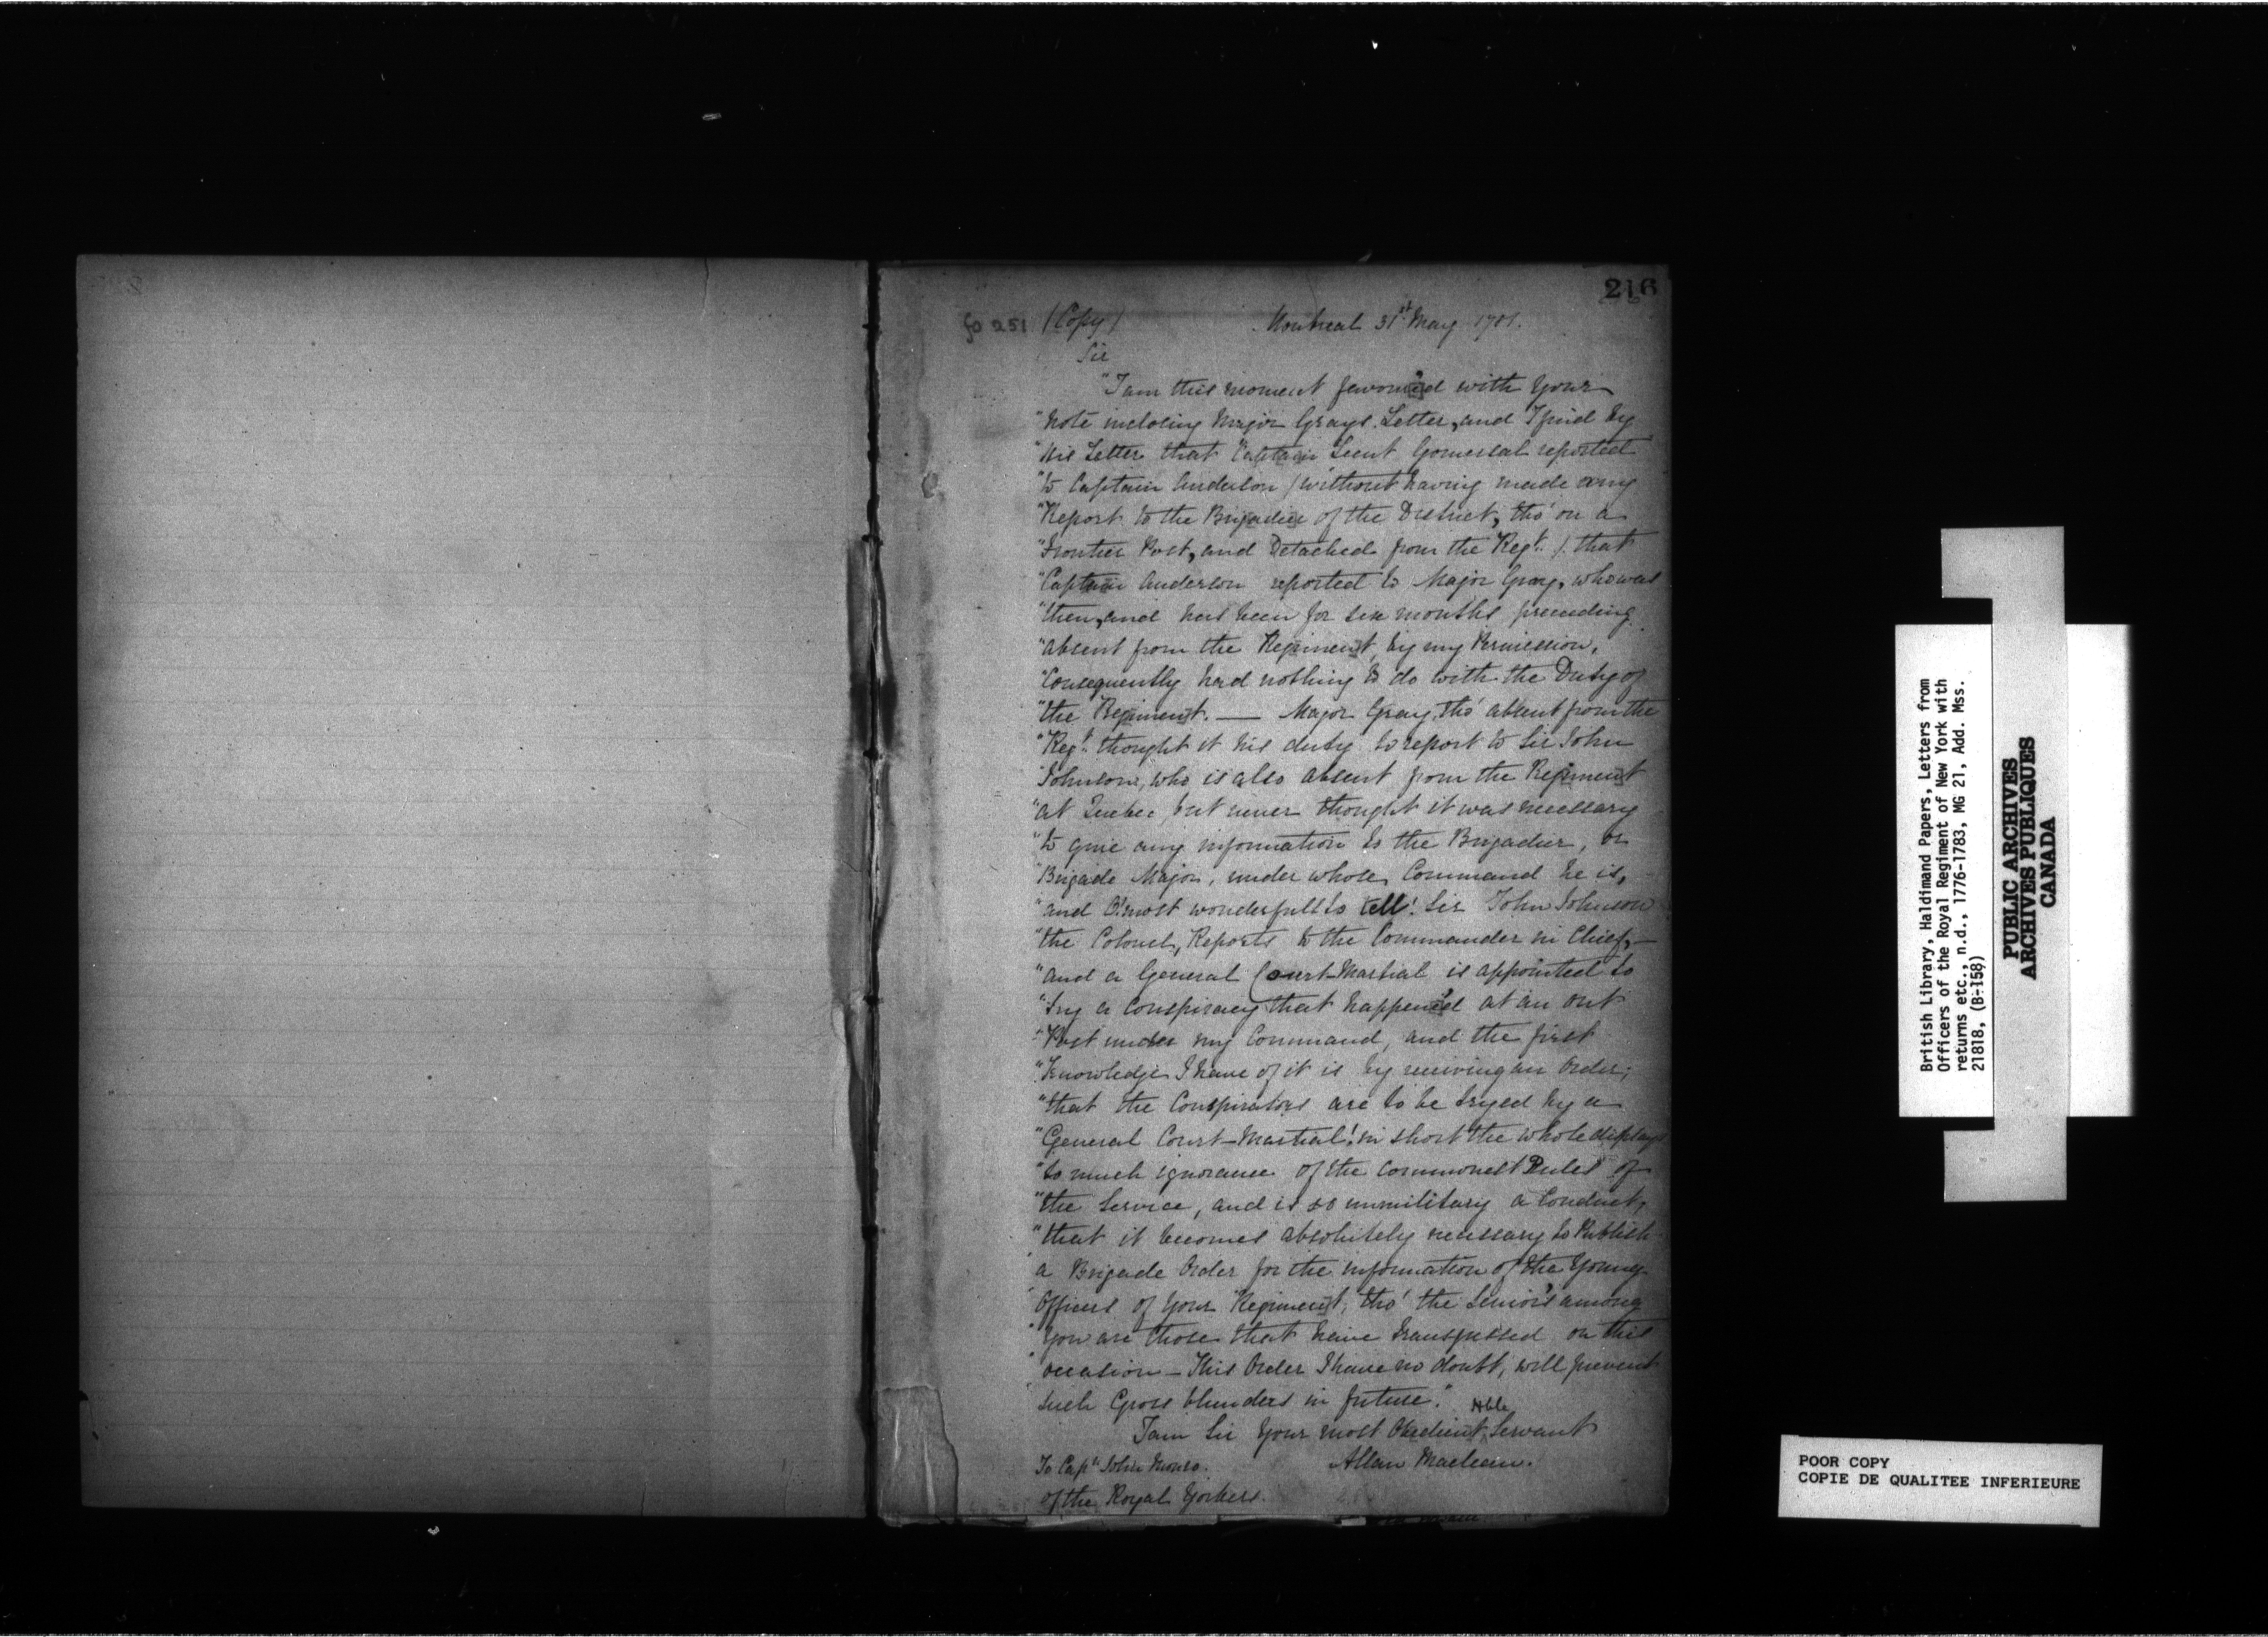 216
fo 251 (Copy) Montreal 31st May 1781.
Sir
"I am this moment favour'd with Your
"Note inclosing Major Grays Letter, and I find by
"His Letter that Captain Lieut Gomersal reported
"to Captain Anderson / without having made any
"Report to the Brigadier of the District, tho' on a
"Frontier Post, and Detached from the Regt. /. that
"Captain Anderson reported to Major Gray, who was
"then, and had been for six months preceeding
"absent from the Regiment, by my Permission,
"Consequently had nothing to do with the Duty of
"the Regiment. — Major Gray, tho' absent from the
"Regt. thought it his duty to report to Sir John
"Johnson, who is also absent from the Regiment
"at Quebec, but never thought it was necessary
"to give any information to the Brigadier, or
"Brigade Major, under whose Command he is,
"and O! most wonderfull to tell! Sir John Johnson
"the Colonel, Reports to the Commander in Chief, —
"and a General Court-Martial is appointed to
"try a Conspiracy that happen'd at an out
"Post under my Command, and the first
"Knowledge I have of it is by receiving an Order;
"that the Conspirators are to be tryed by a
"General Court-Martial! in short the whole displays
"so much ignorance of the commonest Rules of
"the Service, and is so unmilitary a Conduct,
"that it becomes absolutely necessary to Publish
"a Brigade Order for the information of the Young
"Officers of Your Regiment, tho' the Senior's among
"You are those that have transgressed on this
"occasion — This Order I have no doubt, will prevent
"such Gross blunders in future."
I am Sir Your most Obedient Hble Servant
To Captn John Munro. Allan Maclean.
of the Royal Yorkers.
British Library, Haldimand Papers, Letters from
Officers of the Royal Regiment of New York with
returns etc., n.d., 1776-1783, MG 21, Add. Mss.
21818, (B-158)
PUBLIC ARCHIVES
ARCHIVES PUBLIQUES
CANADA
POOR COPY
COPIE DE QUALITEE INFERIEURE